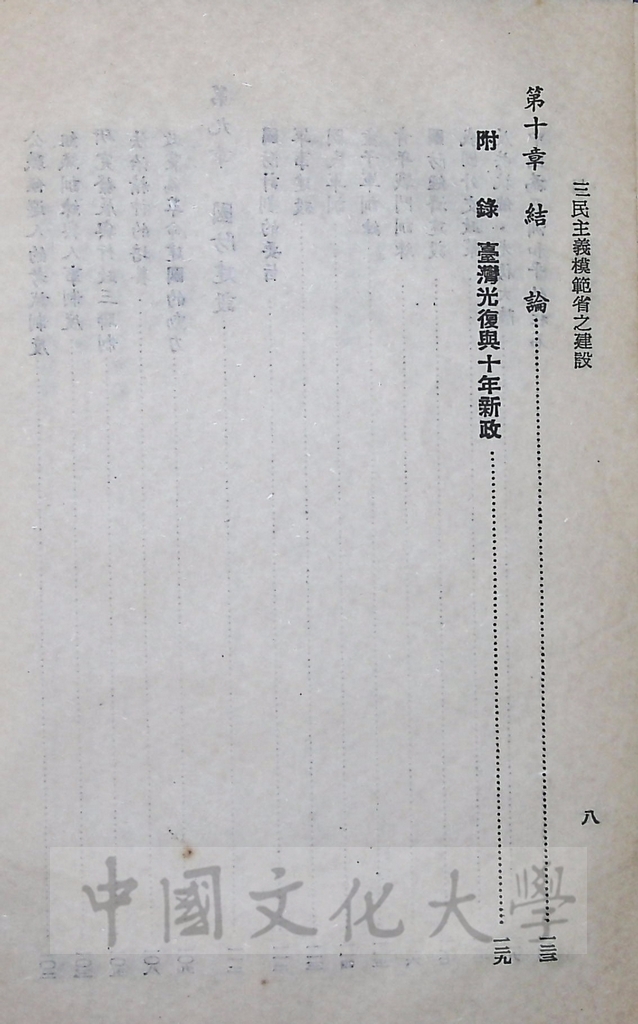 三民主義模範省之建設
八
第十章 結論……一二三
附錄 臺灣光復與十年新政……一二九
中國文化大學